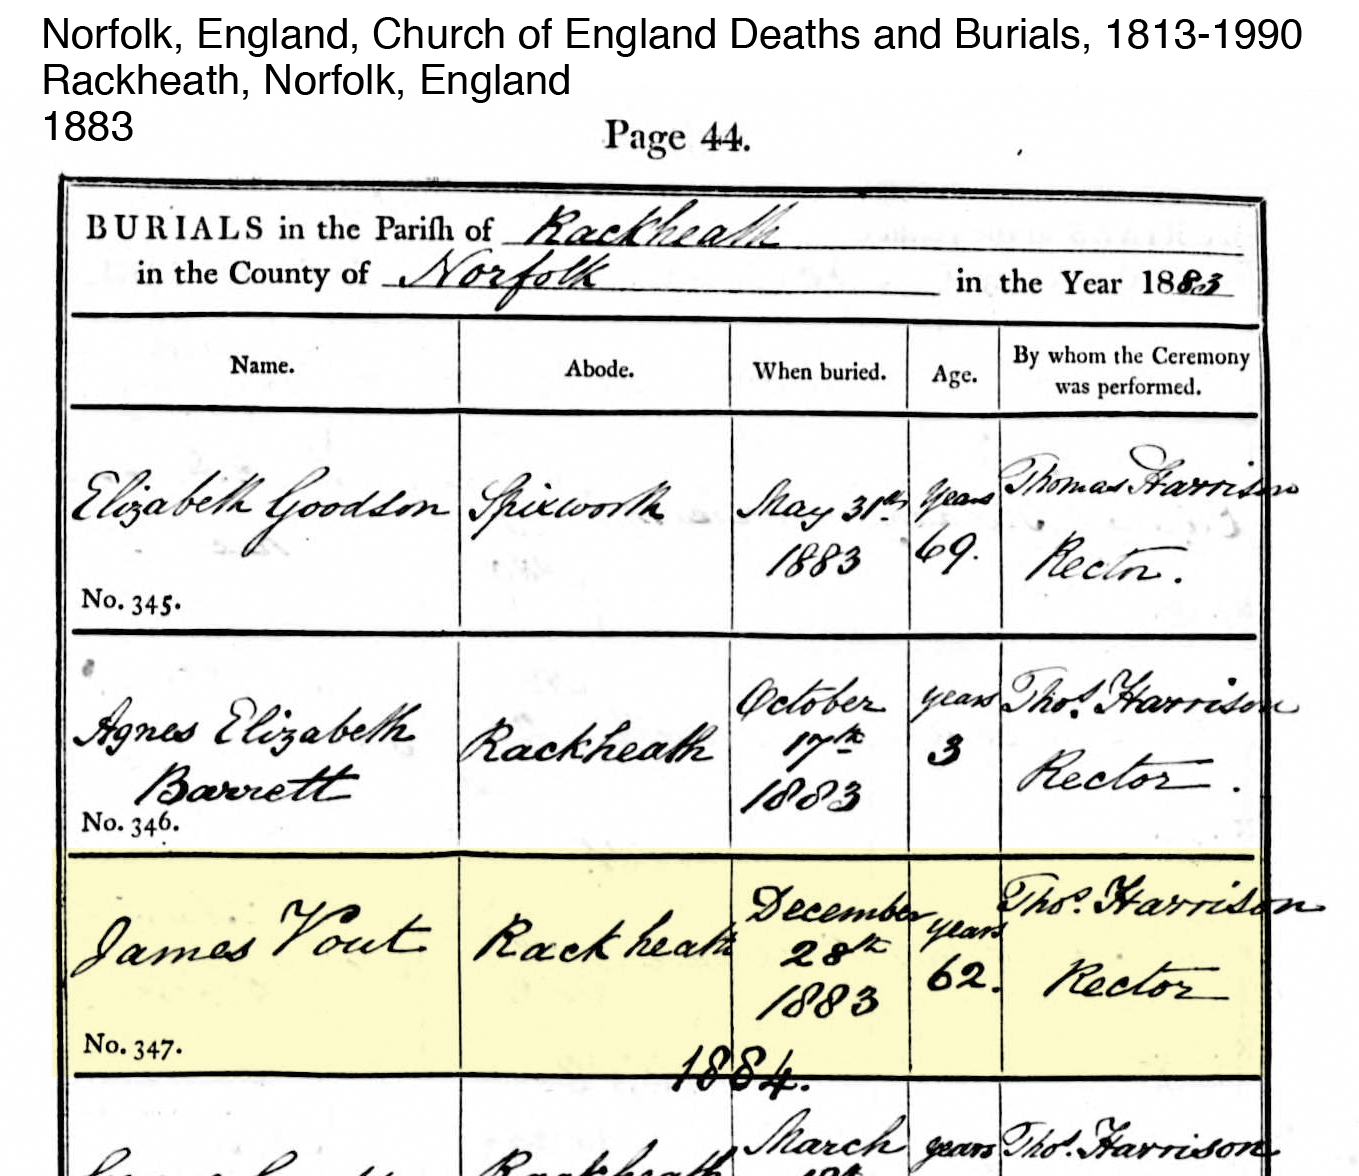 Norfolk, England, Church of England Deaths and Burials, 1813-1990
Rackheath, Norfolk, England
1883
Page 44.
BURIALS in the Pariſh of Rackheath
in the County of Norfolk in the Year 1883
Name. Abode. When buried. Age. By whom the Ceremony was performed.
Elizabeth Goodson Spixworth May 31st 1883 Years 69. Thomas Harrison Rector.
No. 345.
Agnes Elizabeth Barrett Rackheath October 17th 1883 years 3 Thos. Harrison Rector.
No. 346.
James Vout Rackheath December 28th 1883 years 62. Thos. Harrison Rector
No. 347.
1884.
Rackheath March years Thos. Harrison